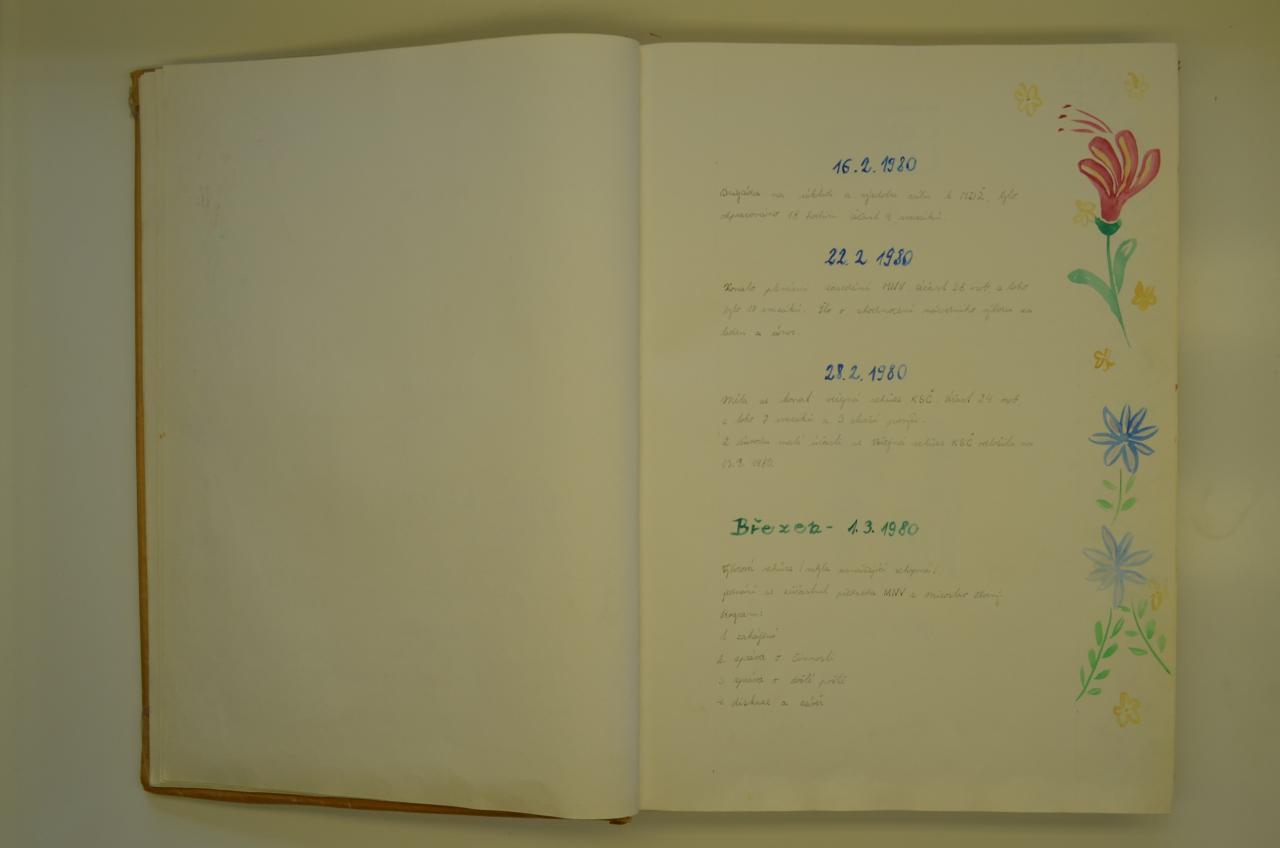 16.2.1980
Brigáda na úklidu a výzdobu sálu k MDŽ, bylo
odpracováno 18 hodin účast 9 svazáků.
22.2 1980
Konalo plenární zasedání MNV účast 28 osob z toho
bylo 10 svazáků. Šlo o zhodnocení náborového výboru za
leden a únor.
28.2.1980
Měla se konat veřejná schůze KSČ. Účast 24 osob
z toho 7 svazáků a 3
Z důvodu malé účasti se veřejná schůze KSČ odložila na
1980.
Březen - 1.3.1980
Výborová schůze
jednání se zúčastnil předseda MNV s. Miroslav
Program:
1. zahájení
2. zpráva o činnosti
3. zpráva o došlé poště
4. diskuse a závěr